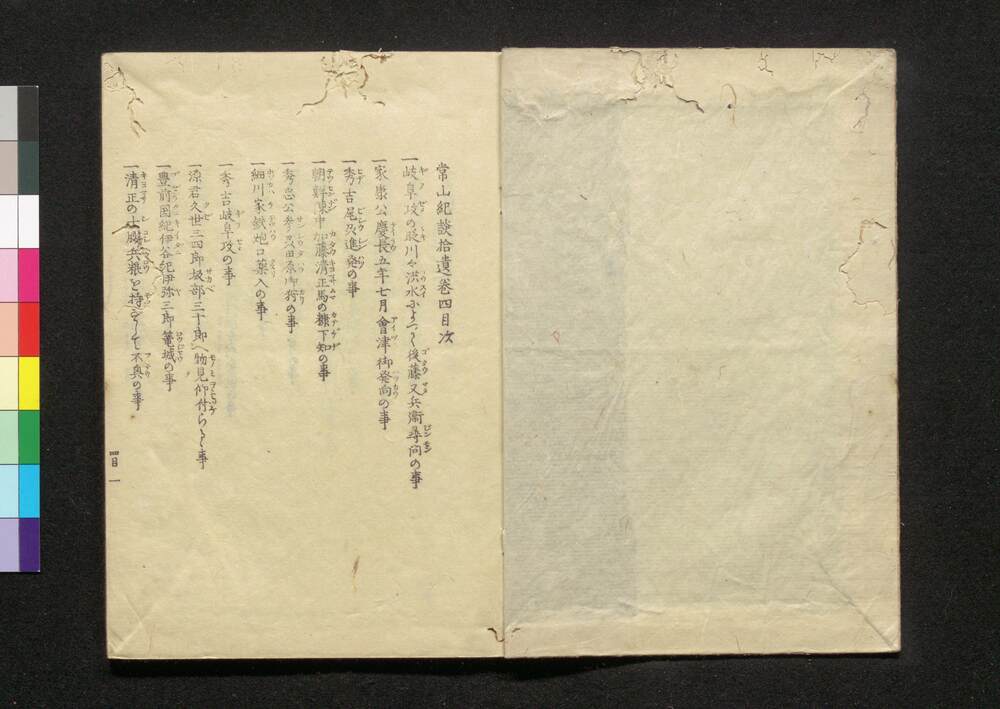 常山紀談拾遺巻四目次
一岐阜攻の時川々洪水によつて後藤又兵衛尋問の事
一家康公慶長五年七月會津御発向の事
一秀吉尾及進発の事
一朝鮮陳中加藤清正馬の糠下知の事
一秀忠公参州田原御狩の事
一細川家鐵炮口薬入の事
一秀吉岐阜攻の事
一源君久世三四郎坂部三十郎へ物見仰付らるゝ事
一豊前国紀伊谷紀伊弥三郎篭城の事
一清正の士腰兵粮を持ずして不興の事
四目 一